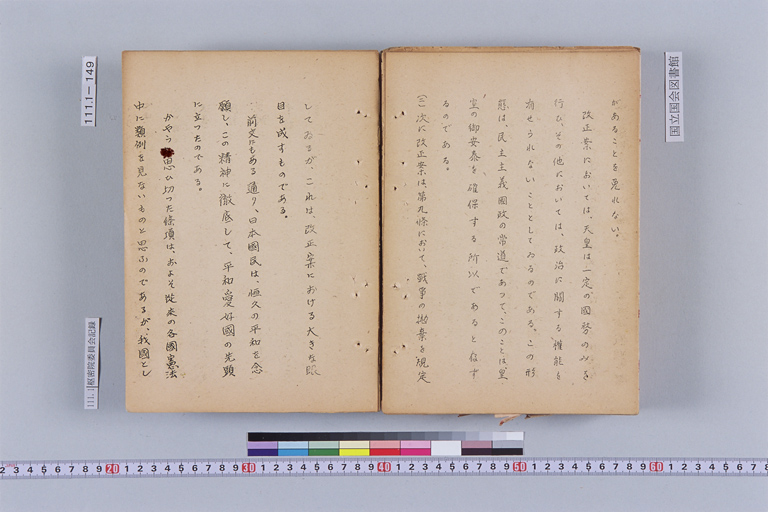 があることを免れない。
改正案においては、天皇は一定の國務のみを
行ひ、その他においては、政治に関する権能を
有せられないこととしてゐるのである。この形
態は、民主主義國政の常道であつて、このことは、皇
室の御安泰を確保する所以であると信ず
るのである。
(三)次に改正案は、第九條において、戦争の抛棄を規定
してゐるが、これは、改正案における大きな眼
目を成すものである。
前文にもある通り、日本國民は、恒久の平和を念
願し、この精神に徹底して、平和愛好國の先頭
に立つたのである。
かやう思ひ切つた條項は、およそ従来の各國憲法
中に類例を見ないものと思ふのであるが、我國とし
111.1-149
国立国会図書館
111.1 枢密院委員会記録
2 3 4 5 6 7 8 9 20 1 2 3 4 5 6 7 8 9 30 1 2 3 4 5 6 7 8 9 40 1 2 3 4 5 6 7 8 9 50 1 2 3 4 5 6 7 8 9 60 1 2 3 4 5 6 7